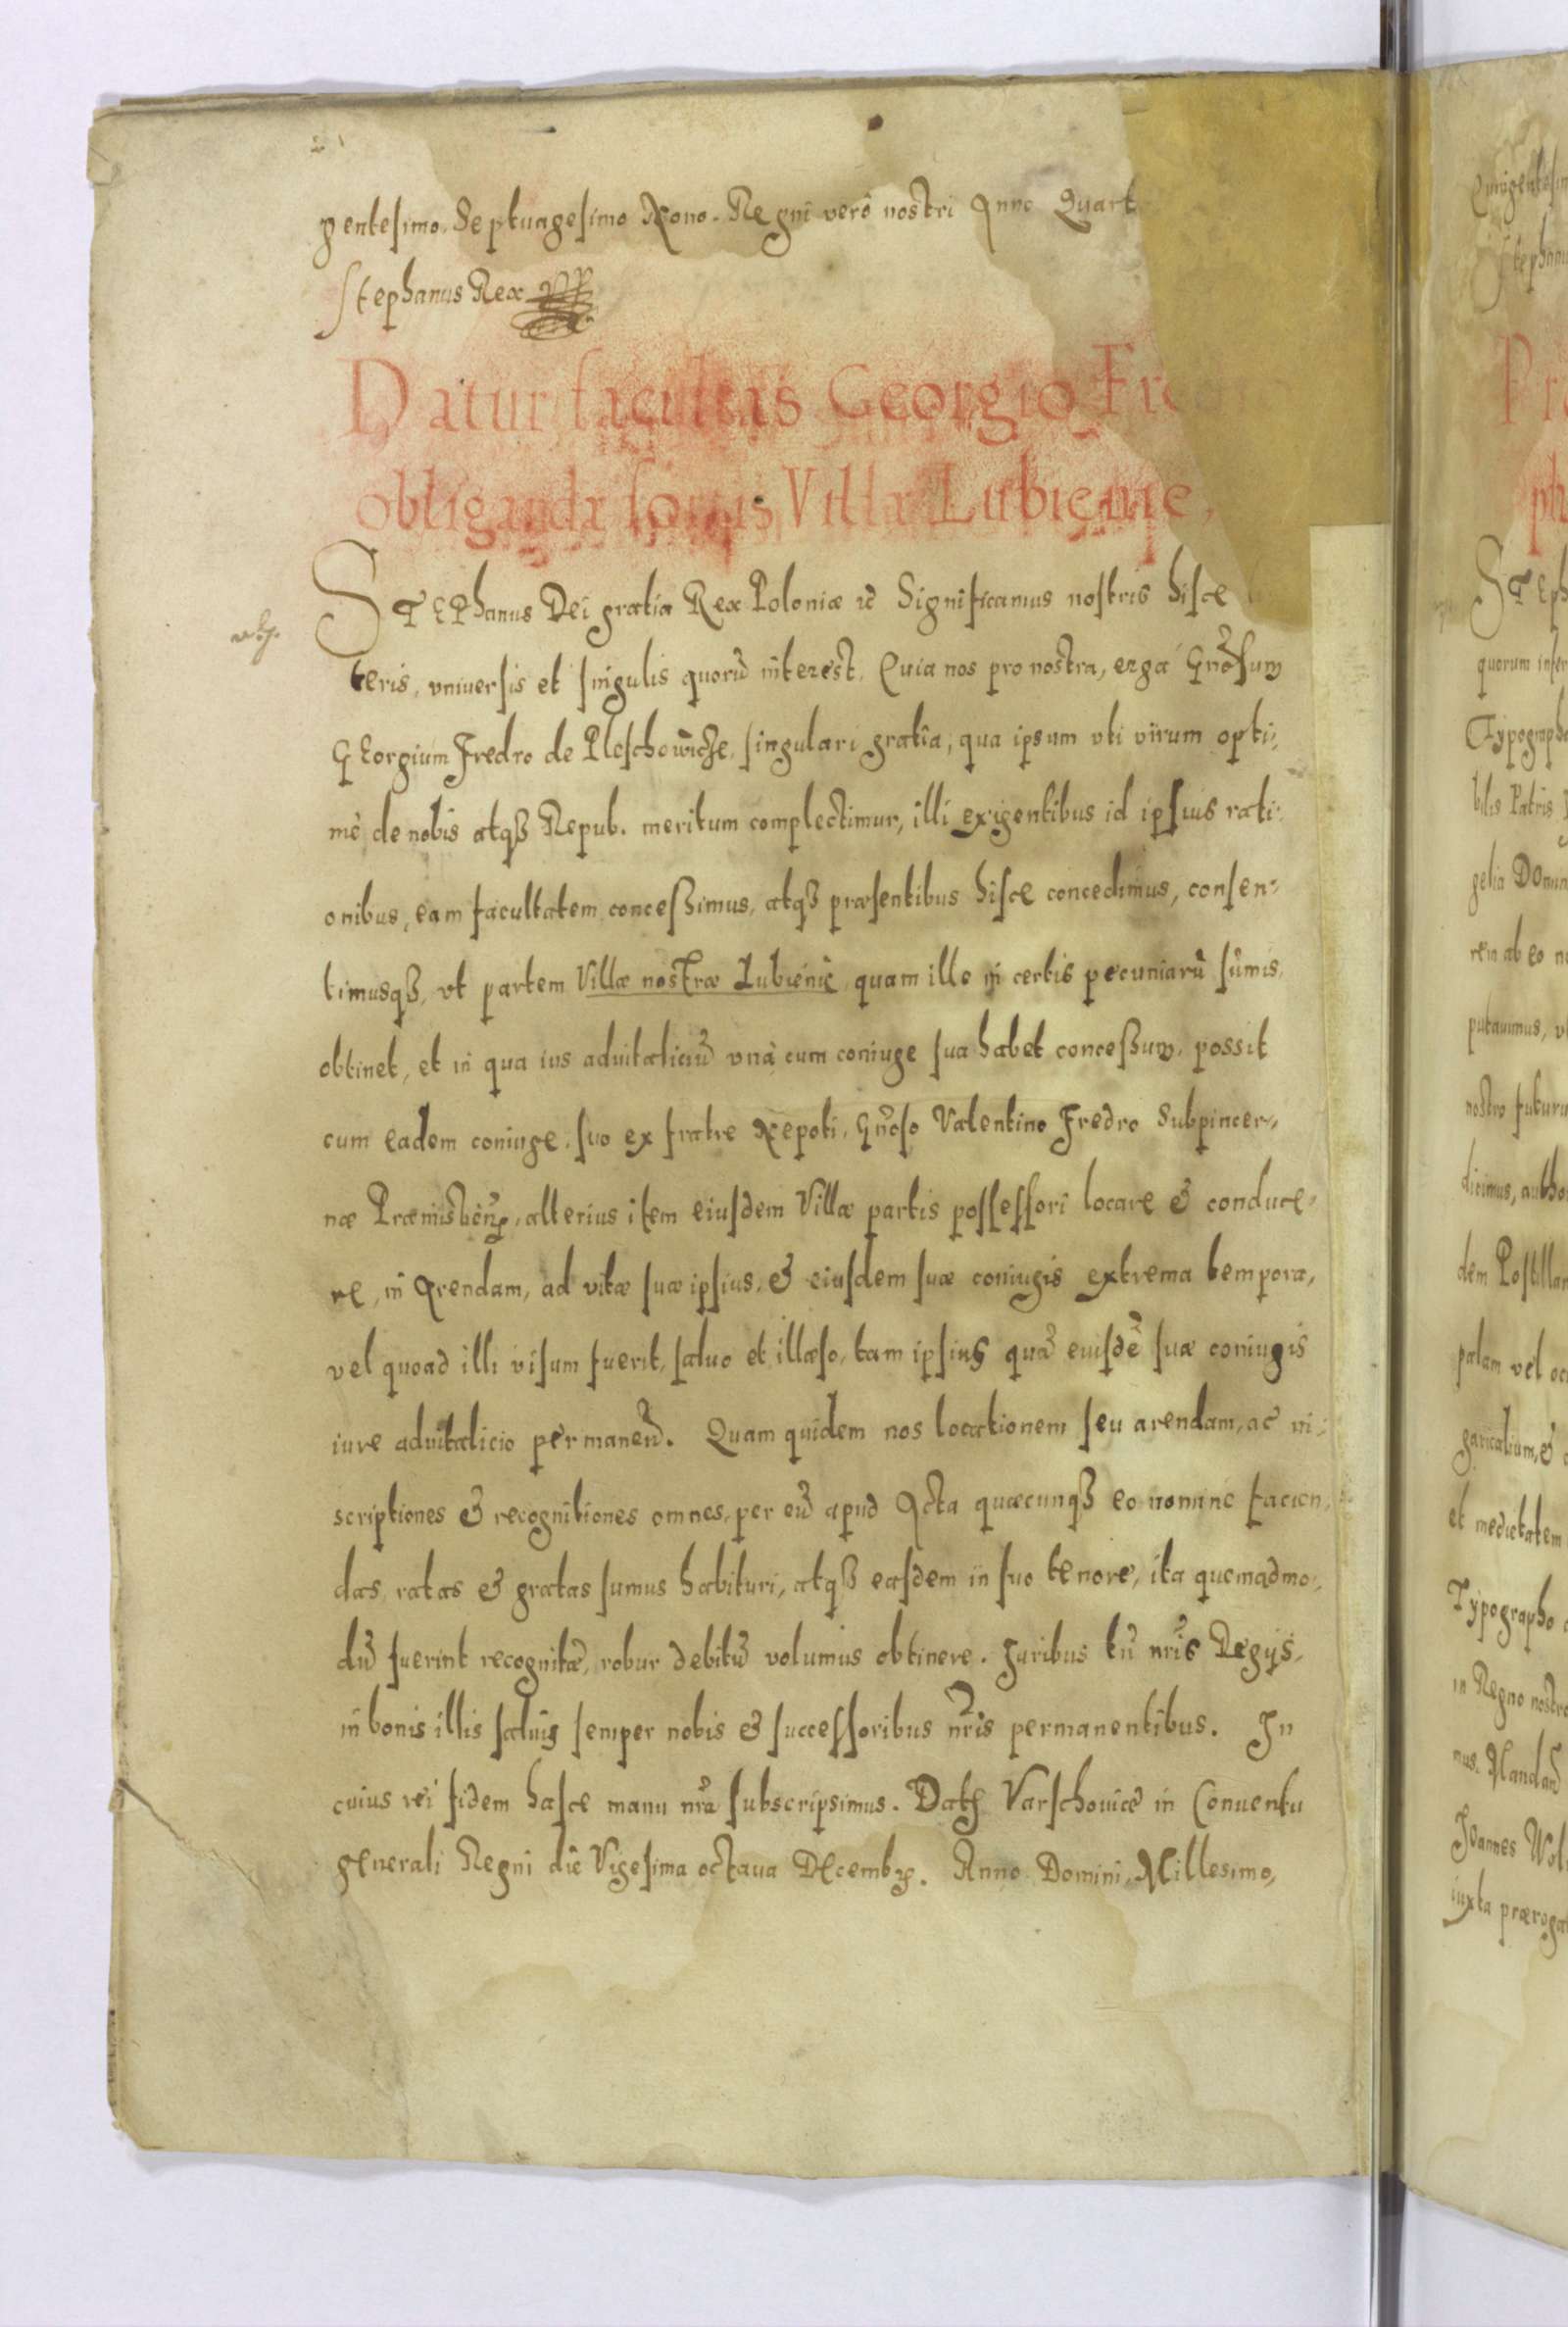 gentesimo. Septuagesimo Nono. Regni verò nostri Anno Quart
Stephanus Rex
Datur facultas Georgio Fre
obligandæ Villæ Lubienie,
STEPhanus Dei gratia Rex Poloniæ &c Significamus nostris hisce
teris, vniuersis et singulis quorũ interest. Quia nos pro nostra, erga Gnõsum
GEorgium Fredro de Pleschowicze, singulari gratia, qua ipsum vti virum opti-
mè de nobis atqȝ Repub. meritum complectimur, illi exigentibus id ipsius rati-
onibus, eam facultatem concessimus, atqȝ præsentibus hisce concedimus, consen-
timusqȝ, vt partem Villæ nostræ Lubienie, quam ille in certis pecuniarũ sũmis
obtinet, et in qua ius aduitaliciũ vnà cum coniuge sua habet concessum, possit
cum eadem coniuge, suo ex fratre Nepoti, Gnõso Valentino Fredro Subpincer-
næ Præmislieñ, alterius item eiusdem Villæ partis possessori locare & conduce-
re, in Arendam, ad vitæ suæ ipsius, & eiusdem suæ coniugis extrema tempora,
vel quoad illi visum fuerit, saluo et illæso, tam ipsius quã eiusdẽ suæ coniugis
iure aduitalicio permaneñ. Quam quidem nos locationem seu arendam, ac in-
scriptiones & recognitiones omnes, per eũ apud Acta quæcunqȝ eo nomine facien-
das, ratas & gratas sumus habituri, atqȝ easdem in suo tenore, ita quemadmo-
dũ fuerint recognitæ, robur debitũ volumus obtinere. Juribus tñ nrĩs Regijs,
in bonis illis saluis semper nobis & successoribus nrĩs permanentibus. In
cuius rei fidem hasce manu nrã subscripsimus. Datꝫ Varschouiæ in Conuentu
generali Regni die Vigesima octaua Decembꝫ. Anno Domini, Millesimo,
quorum
Typograph
bilis Patris
gelia
rem ab eo
putauimus,
nostro
dicimus,
dem
palam vel
et medietatem
Typographo
in Regno
Joannes
iuxta